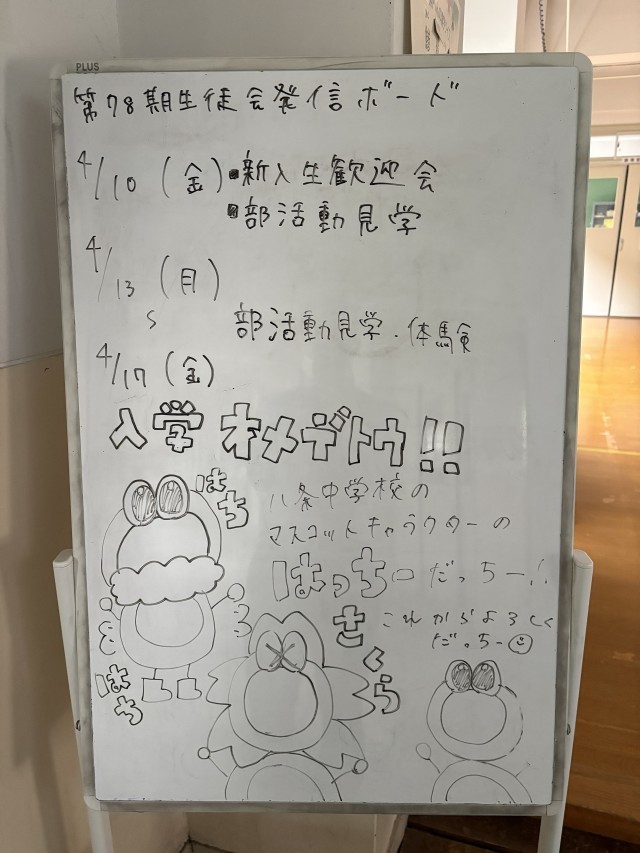 PLUS
第78期生徒会発信ボード
4/10(金)▪新入生歓迎会
▪部活動見学
4/13(月)
S
部活動見学・体験
4/17(金)
入学 オメデトウ!!
はち
八条中学校の
マスコットキャラクターの
はっち□だっちー!!
さくら
これからよろしく
だっちー
はち